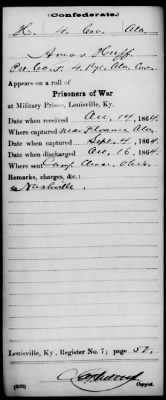 (Confederate.)
H. 4. Cav. Ala.
Amos Huff
Pvt. Co. F. 4 Regt. Ala. Cav.
Appears on a roll of
Prisoners of War
at Military Prison, Louisville, Ky.
Date when received Dec. 14, 1864.
Where captured near Ala.
Date when captured Sept. 4, 1864.
Date when discharged Dec. 16, 1864.
Where sent Camp Chase, Ohio.
Remarks, charges, &c.:
Nashville.
Louisville, Ky., Register No. 7; page 52.
(639)
Copyist.